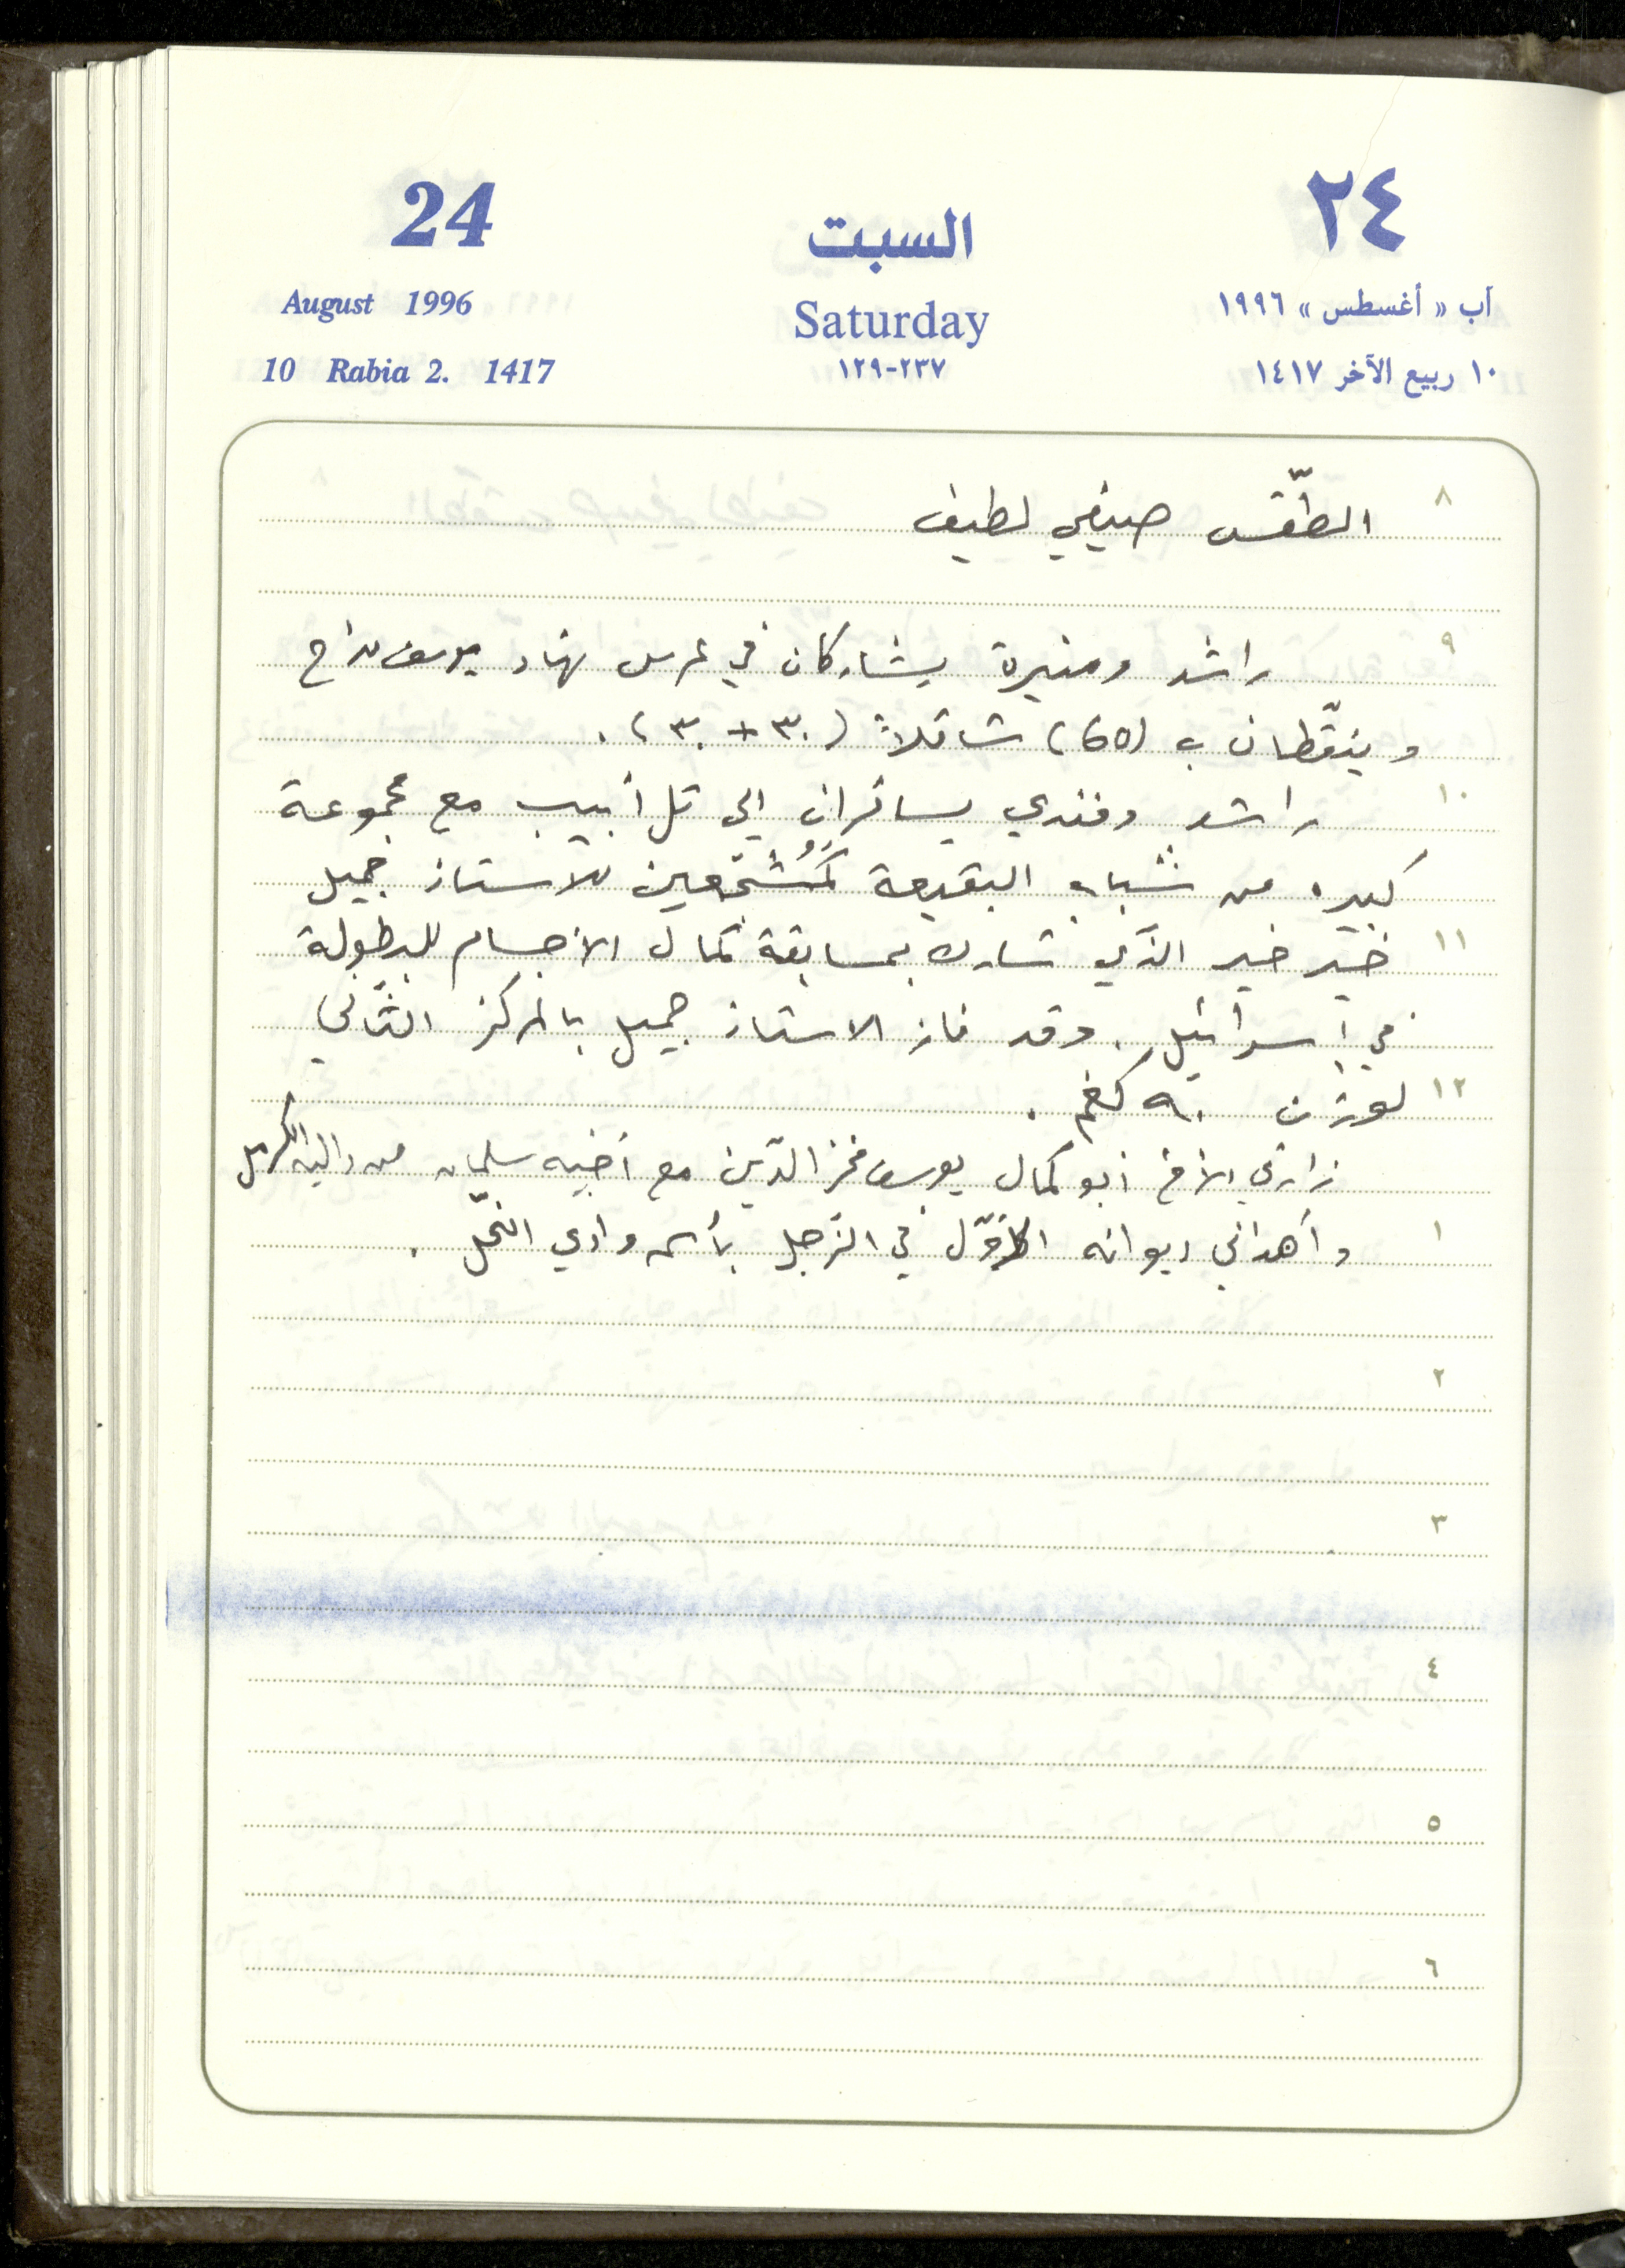 24 السبت ٢٤
August 1996 Saturday آب « أغسطس » ١٩٩٦
10 Rabia 2. 1417 ٢٣٧-١٢٩ ١٠ ربيع الآخر ١٤١٧
٨ الطّقس صيفي لطيف
٩ راشد ومنيرة يشاركان في عرس نهاد يوسف مداح
وينقّطان ب (60) شاقلاً (٣٠ + ٣٠).
١٠ راشد وفندي يسافران إلى تل أبيب مع مجموعة
كبيره من شباب البقيعة كمُشجّعين للاستاذ جميل
١١ خيّر خير الذّي شارك بمسابقة كمال الأجسام للبطولة
في إسرائيل. وقد فاز الاستاذ جميل بالمركز الثّاني
١٢ لوزن ٩٠ كغم.
زارني الأخ أبو كمال يوسف فخر الدّين مع أخيه سلمان من دالية الكرمل
١ وأهداني ديوانه الأوّل في الزّجل بأسم وادي النّحل.
٢
٣
٤
٥
٦